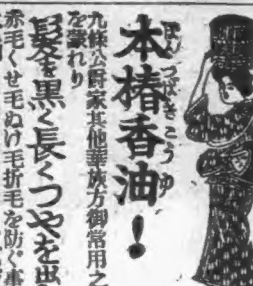 本椿香油!
ほんつばきこうゆ
九條公爵家其他華族方御常用之
を蒙れり
髪を黒く長くつやを出
赤毛くせ毛ぬけ毛折毛を防ぐ事